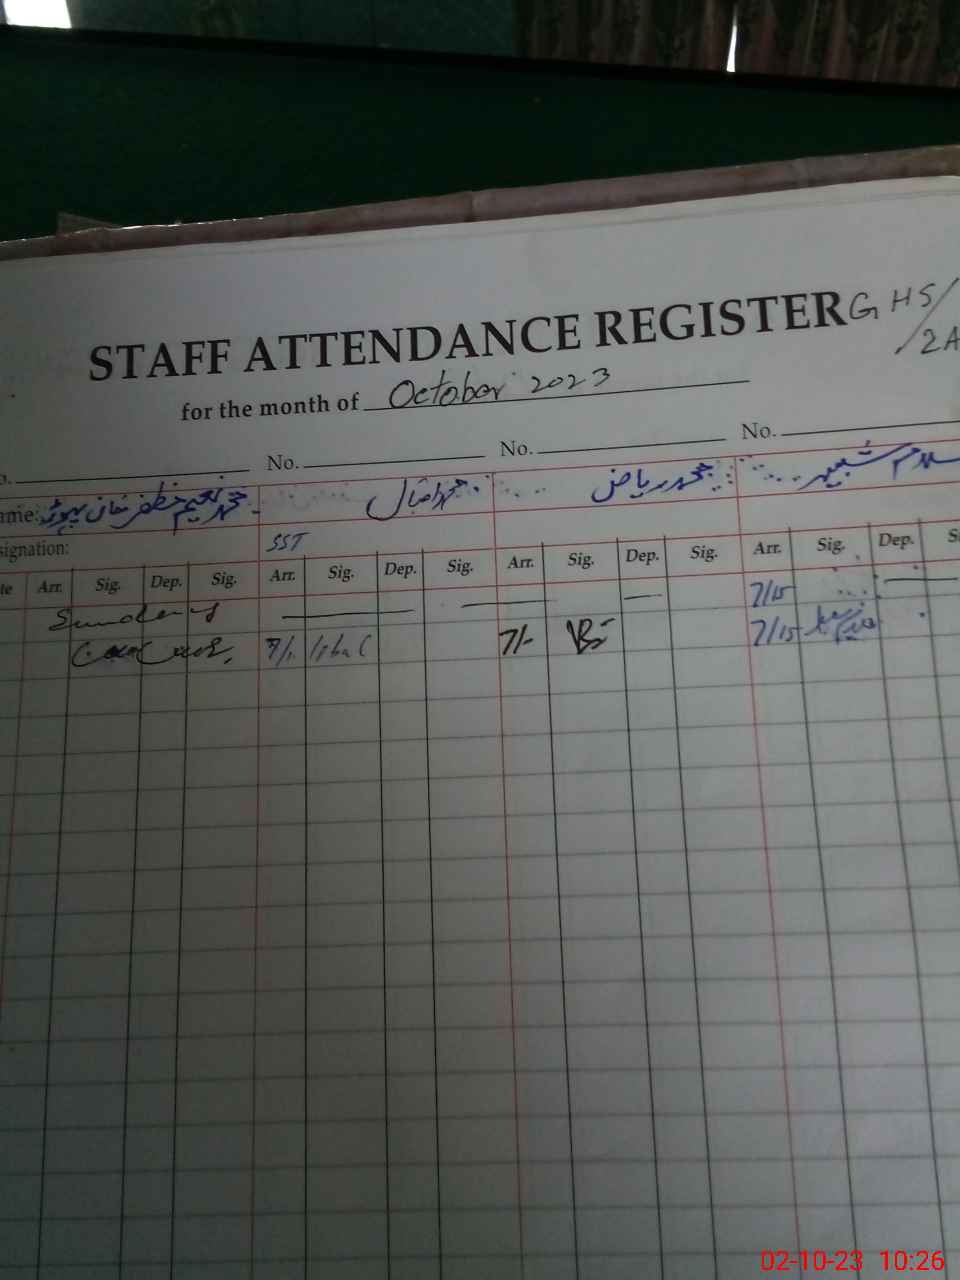 STAFF ATTENDANCE REGISTER GHS/
/2A
for the month of October 2023
No. No. No.
ame: محمد نعیم مظفر خان محمد اقبال محمد ریاض شبیر
signation: SST
te Arr. Sig. Dep. Sig. Arr. Sig. Dep. Sig. Arr. Sig. Dep. Sig. Arr. Sig. Dep. S
Sunday 7/15
7/- Iqbal 7/- 7/15
02-10-23 10:26